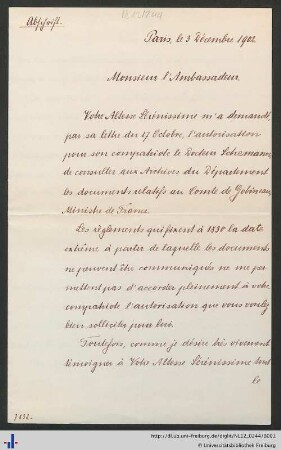 Abschrift.
Paris, le 3 Décembre 1902.
Monsieur l'Ambassadeur
Votre Altesse Sérénissime m'a demandé,
par sa lettre du 17 Octobre, l'autorisation
pour son compatriote le Docteur Schemann
de consulter aux Archives du Département
les documents relatifs au Comte de Gobineau
Ministre de France.
Les règlements qui fixent à 1830 la date
extrême à partir de laquelle les documents
ne peuvent être communiqués ne me per-
mettent pas d'accorder pleinement à votre
compatriote l'autorisation que vous voulez
bien solliciter pour lui.
Toutefois, comme je désire très vivement
témoigner à Votre Altesse Sérénissime tout
le
http://dl.ub.uni-freiburg.de/diglit/NL12_0244/0001
© Universitätsbibliothek Freiburg